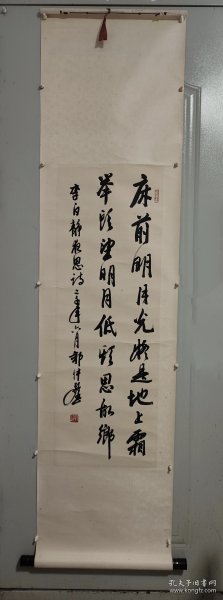 床前明月光疑是地上霜
举头望明月低头思故乡
李白静夜思诗 二〇〇年六月
孔夫子旧书网
www.kongfz.com